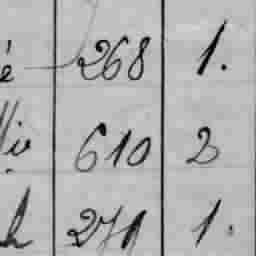 é 268 1.
610 2
h 271 1.